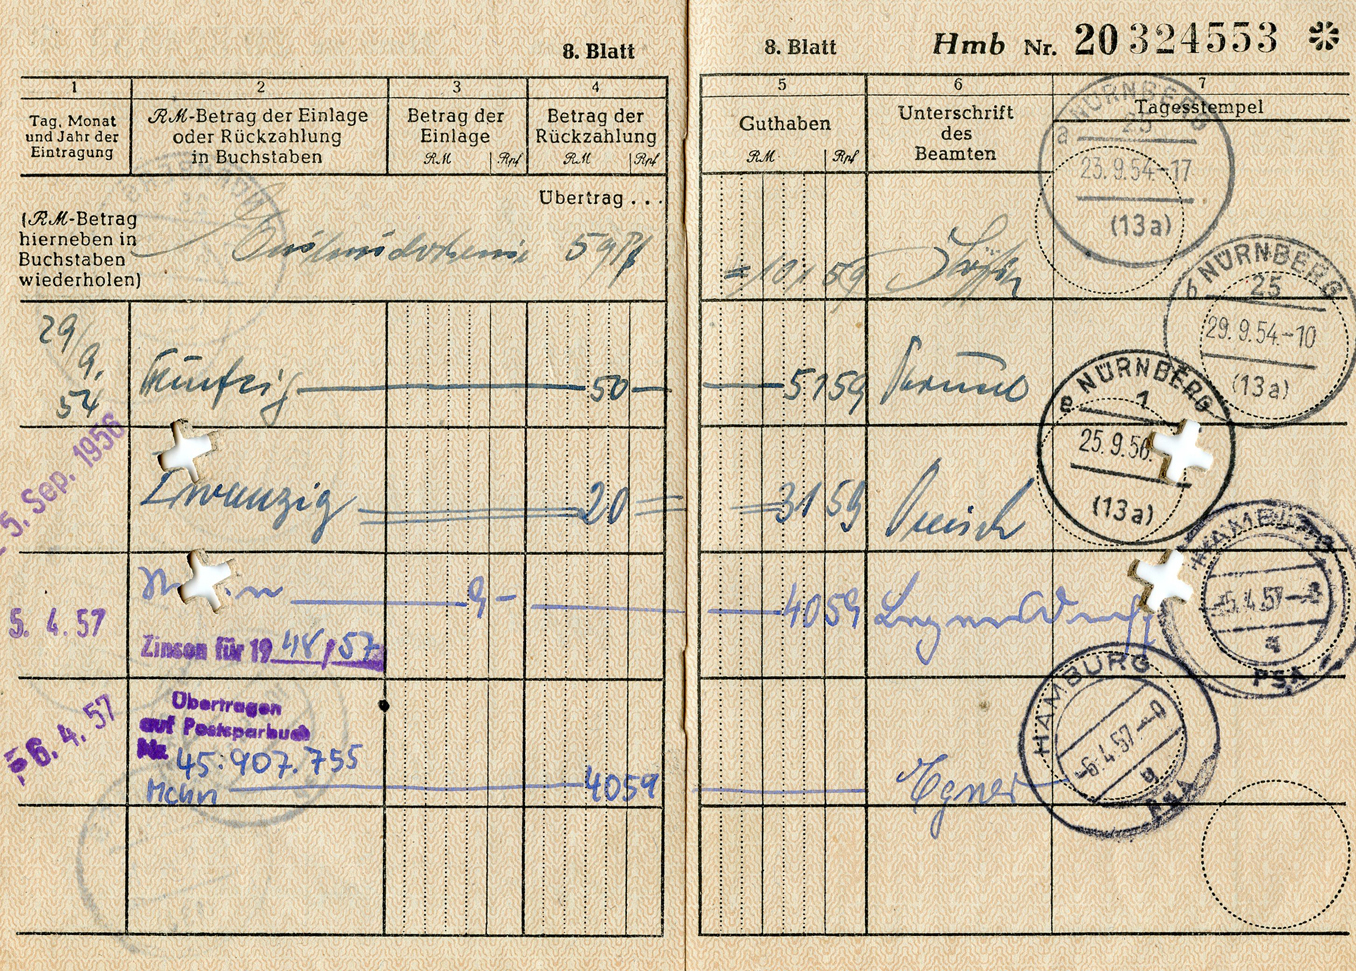 8. Blatt
1 2 3 4
Tag, Monat und Jahr der Eintragung
RM-Betrag der Einlage oder Rückzahlung in Buchstaben
Betrag der Einlage
RM Rpf
Betrag der Rückzahlung
RM Rpf
Übertrag . . .
(RM-Betrag
hierneben in
Buchstaben
wiederholen)
29/9. 54
Fünfzig 50
25. Sep. 1956
Zwanzig 20
5. 4. 57
9
Zinsen für 1948/57
-6. 4. 57
Übertragen
auf Postsparbuch
Nr. 45.907.755
4059
8. Blatt
Hmb Nr. 20 324553
5 6 7
Guthaben
RM Rpf
Unterschrift
des
Beamten
Tagesstempel
=101 59
5159
3159
4059
Egner
a NÜRNBERG
25
23.9.54-17
(13a)
b NÜRNBERG
25
29.9.54-10
(13a)
e NÜRNBERG
1
25.9.56
(13a)
HAMBURG
-5.4.57
a
PSA
HAMBURG
-6.4.57-9
a
PSA